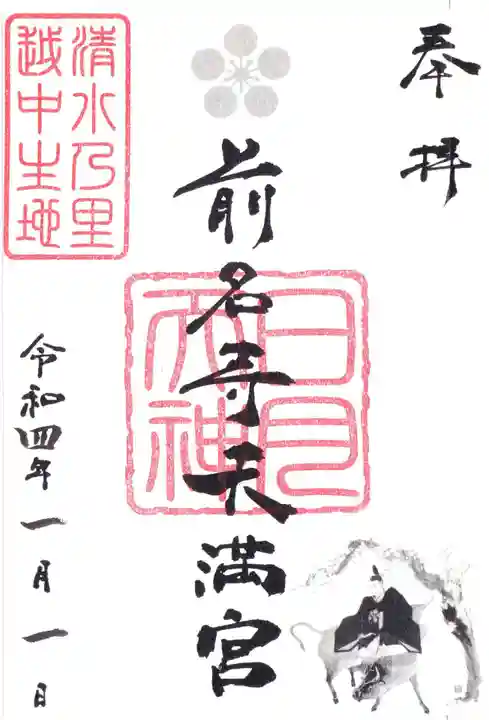 奉拝
清水乃里
越中生地
前名寺天満宮
日見
大神
令和四年一月一日